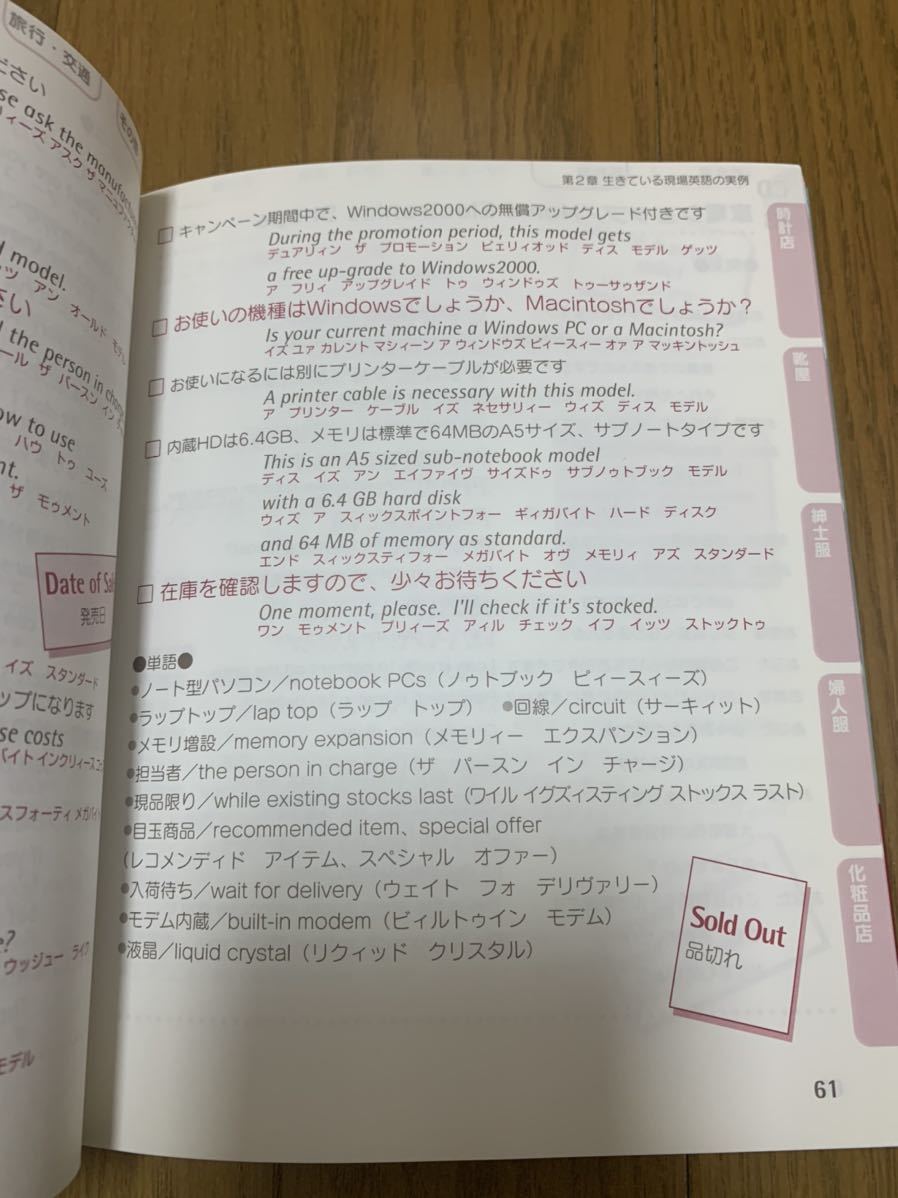 旅行・交通
ださい
se ask the manufactur
リィーズ アスク ザ マニュファク
d model.
ッツ アン オールド モデル
さい
l the person in charge
ール ザ パースン イン チ
ow to use
ハウ トゥ ユーズ
nt.
ザ モゥメント
Date of Sal
発売日
イズ スタンダード
ップになります
se costs
バイト インクリィース コ
スフォーティ メガバイト
e?
ウッジュー ライク
モデル
第2章 生きている現場英語の実例
□ キャンペーン期間中で、Windows2000への無償アップグレード付きです
During the promotion period, this model gets
デュアリィン ザ プロモーション ピェリィオッド ディス モデル ゲッツ
a free up-grade to Windows2000.
ア フリィ アップグレイド トゥ ウィンドゥズ トゥーサゥザンド
□ お使いの機種はWindowsでしょうか、Macintoshでしょうか？
Is your current machine a Windows PC or a Macintosh?
イズ ユァ カレント マシィーン ア ウィンドウズ ピィースィー オァ ア マッキントッシュ
□ お使いになるには別にプリンターケーブルが必要です
A printer cable is necessary with this model.
ア プリンター ケーブル イズ ネセサリィー ウィズ ディス モデル
□ 内蔵HDは6.4GB、メモリは標準で64MBのA5サイズ、サブノートタイプです
This is an A5 sized sub-notebook model
ディス イズ アン エイファイヴ サイズドゥ サブノゥトブック モデル
with a 6.4 GB hard disk
ウィズ ア スィックスポイントフォー ギィガバイト ハード ディスク
and 64 MB of memory as standard.
エンド スィックスティフォー メガバイト オヴ メモリィ アズ スタンダード
□ 在庫を確認しますので、少々お待ちください
One moment, please. I'll check if it's stocked.
ワン モゥメント プリィーズ アィル チェック イフ イッツ ストックトゥ
●単語●
●ノート型パソコン／notebook PCs（ノゥトブック ピィースィーズ）
●ラップトップ／lap top（ラップ トップ） ●回線／circuit（サーキィット）
●メモリ増設／memory expansion（メモリィー エクスパンション）
●担当者／the person in charge（ザ パースン イン チャージ）
●現品限り／while existing stocks last（ワイル イグズィスティング ストックス ラスト）
●目玉商品／recommended item、special offer
（レコメンディド アイテム、スペシャル オファー）
●入荷待ち／wait for delivery（ウェイト フォ デリヴァリー）
●モデム内蔵／built-in modem（ビィルトゥイン モデム）
●液晶／liquid crystal（リクィッド クリスタル）
Sold Out
品切れ
時計店
靴屋
紳士服
婦人服
化粧品店
61